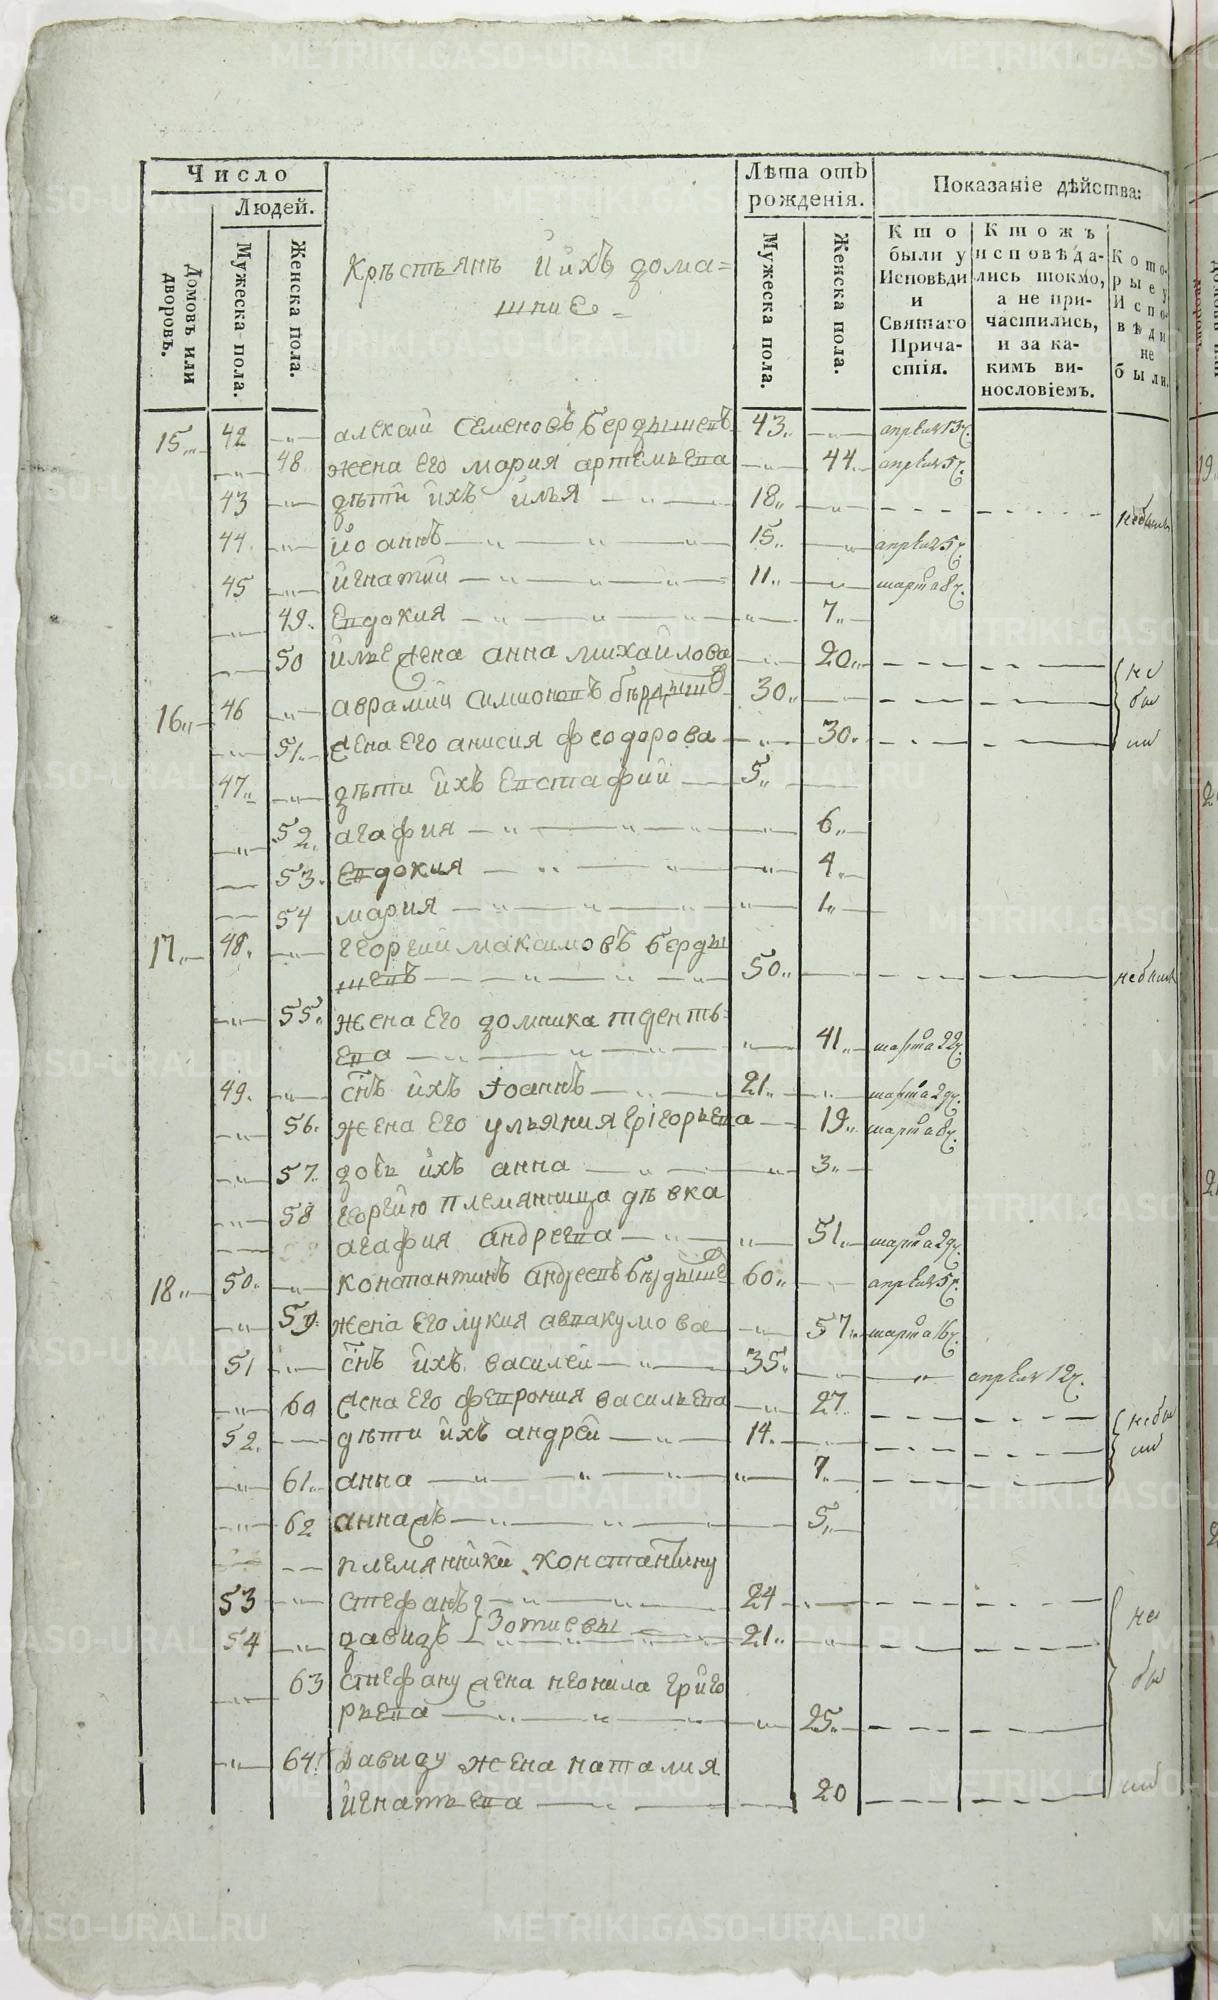 Число
Людей.
Домовъ или дворовъ.
Мужеска пола.
Женска пола.
Крѣстьянъ ӥ ихъ дома=
шние =
Лѣта отъ
рожденія.
Мужеска пола.
Женска пола.
Показаніе дѣйства:
Кто
были у
Исповѣди
и
Святаго
Прича-
стія.
Ктожъ
исповѣда-
лись токмо,
а не при-
частились,
и за ка-
кимъ ви-
нословіемъ.
Кото-
рые у
Испо-
вѣди
не
были.
15 42 алексӥй семеновъ бердышевъ 43 апреля 13ч.
48 жена его мария артемьева 44 апреля 5ч.
43 дѣти ӥхъ ӥлья 18 небыли
44 ӥоаннъ 15 апреля 5ч.
45 ӥгнатӥй 11 марта 8ч.
49 евдокия 7
50 ӥлье жена анна михайлова 20 не
16 46 аврамӥй симионовъ бердышев 30 бы
51 жена его анисия феодорова 30 ли
47 дѣти ӥхъ евстафӥй 5
52 агафия 6
53 евдокия 4
54 мария 1
17 48 георгӥй максимовъ берды
шевъ 50 небыли
55 жена его домника терентъ=
ева 41 марта 22ч.
49 снъ ӥхъ Іоаннъ 21 марта 29ч.
56 жена его ульяния григорьева 19 марта 8ч.
57 дочь ӥхъ анна 3
58 георгӥю племянница дѣвка
агафия андреева 51 марта 29ч.
18 50 константинъ андреевъ бердышев 60 апреля 5ч.
59 жена его лукия авакумова 57 марта 16ч.
51 снъ ӥхъ василей 35 апреля 12ч.
60 жена его феврония васильева 27 небы
52 дѣти ӥхъ андрей 14 ли
61 анна 7
62 анна жъ 5
племянники константину
53 стефанъ 24 не
54 давидъ } Зотиевы 21
63 стефану жена неонила григо бы
рьева 25
64 Давиду жена наталия
ӥгнатьева 20 ли
METRIKI.GASO-URAL.RU